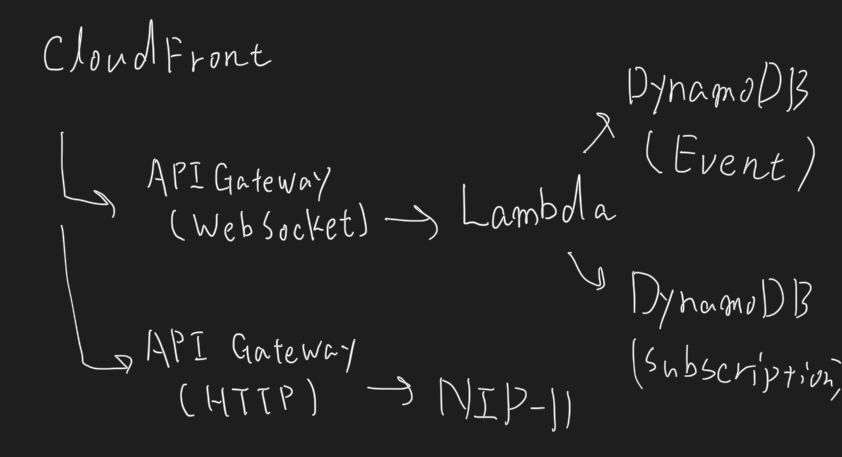 CloudFront
API Gateway
(WebSocket)
Lambda
DynamoDB
(Event)
DynamoDB
(Subscription)
API Gateway
(HTTP)
NIP-11